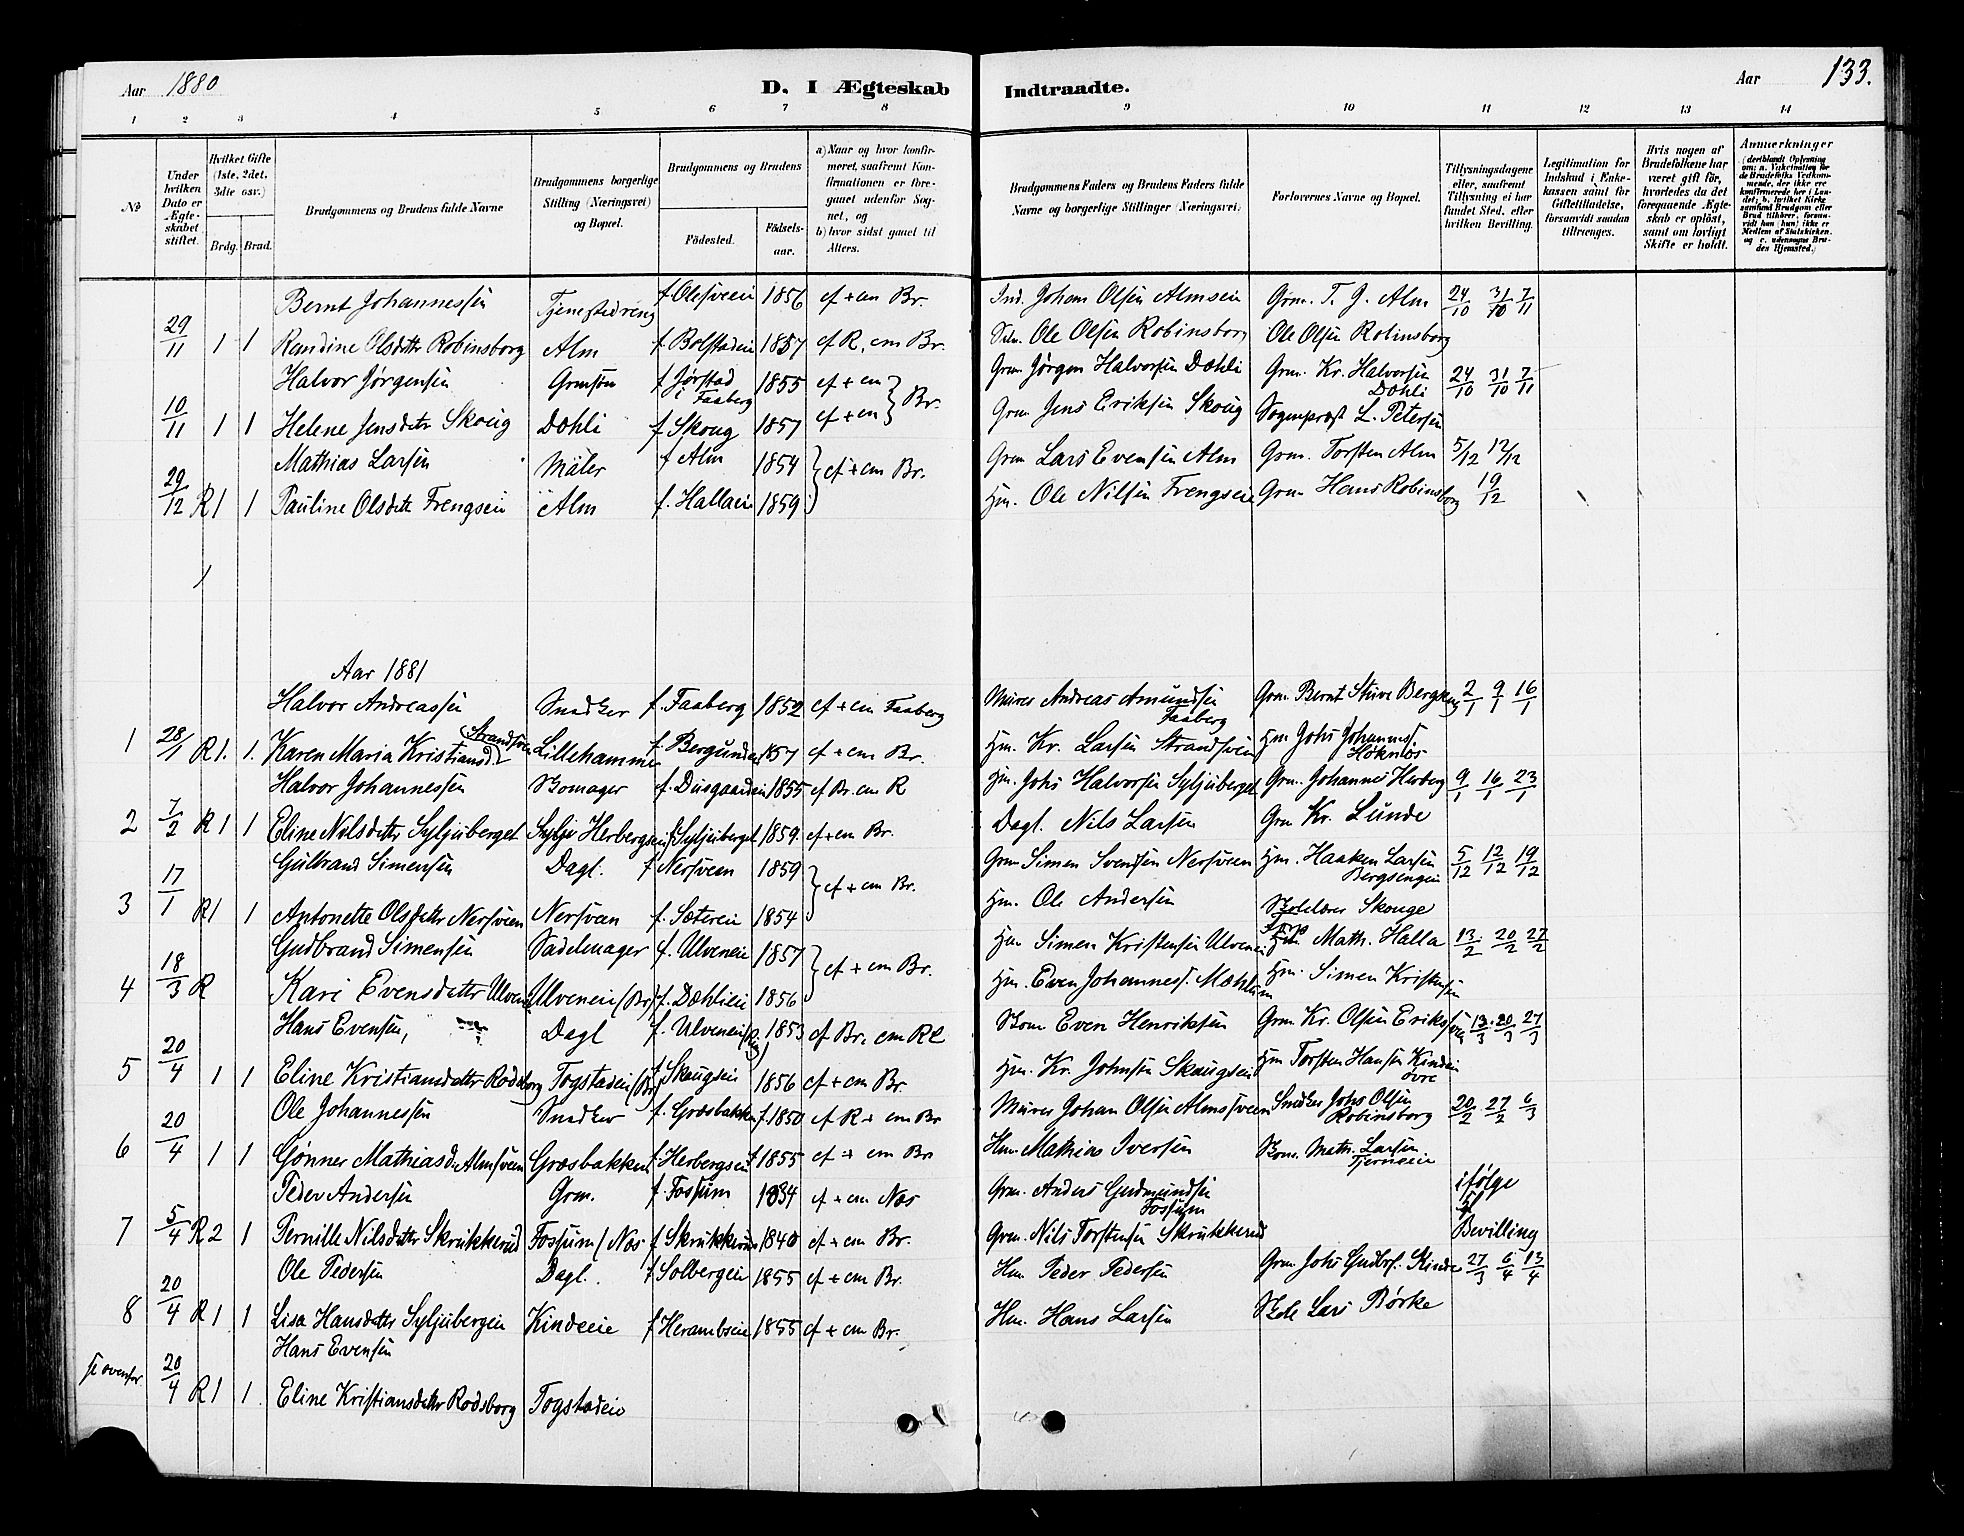 Aar 1880
D. I Ægteskab Indtraadte.
Aar 133.
1 2 3 4 5 6 7 8 9 10 11 12 13 14
№
Under hvilken Dato er Ægteskabet stiftet.
Hvilket Gifte (1ste, 2det, 3die osv.)
Brdg. Brud.
Brudgommens og Brudens fulde Navne
Brudgommens borgerlige Stilling (Næringsvei) og Bopæl.
Brudgommens og Brudens
Födested.
Födsels-aar.
a) Naar og hvor konfirmeret, saafremt Konfirmationen er foregaaet udenfor Sognet, og
b) hvor sidst gaaet til Alters.
Brudgommens Faders og Brudens Faders fulde Navne og borgerlige Stillinger (Næringsvei)
Forlovernes Navne og Bopæl.
Tillysningsdagene eller, saafremt Tillysning ei har fundet Sted, efter hvilken Bevilling.
Legitimation for Indskud i Enkekassen samt for Giftetilladelse, forsaavidt saadan tiltrænges.
Hvis nogen af Brudefolkene har været gift för, hvorledes da det foregaaende Ægteskab er oplöst, samt om lovligt Skifte er holdt.
Anmærkninger
Bernt Johannessen Tjenestedreng f. Olesveen 1856 cf + cm Br. Ind. Johan Olsen Almseie Grm. T. J. Alm 24/10 31/10 7/11
29/11 1 1 Randine Olsdatter Robinsborg Alm f. Bolstadeie 1857 cf R, cm Br. Ole Olsen Robinsborg Ole Olsen Robinsborg
Halvor Jørgensen Grmsön f. Jørstad i Faaberg 1855 cf + cm Br. Grm Jørgen Halvorsen Dæhli Grm. Kr. Halvorsen Dæhli 24/10 31/10 7/11
10/11 1 1 Helene Jensdatter Skoug Dæhli f Skoug 1857 cf + cm Grm Jens Eriksen Skoug Sogneprest L. Petersen
Mathias Larsen Mäler f Alm 1854 cf + cm Br. Grm Lars Evensen Alm Grm. Torsten Alm 5/12 12/12
29/12 R 1 1 Pauline Olsdatter Frengseie Alm f. Hallaeie 1859 Hm. Ole Nilsen Frengseie Grm Hans Robinsborg 19/12
Aar 1881
Halvor Andreassen Snedker f. Faaberg 1852 cf + cm Faaberg Murer Andreas Amundsen Faaberg Grm. Bernt Stuve Bergseng 2/1 9/1 16/1
1 28/1 R 1. 1. Karen Maria Kristiansd. Strandsveen Lillehammer f. Bergunde 1857 cf + cm Br. Hm. Kr. Larsen Strandsveen Hm Johs Johannesf. Høknæs
Halvor Johannessen Skomager f. Diusgaardeie 1855 cf Br. cm R Hm. Johs Halvorsen Syljuberget Grm. Johannes Herberg 9/1 16/1 23/1
2 7/2 R 1 1 Eline Nilsdatter Syljuberget Sylju Herbergseie f Syljuberget 1859 cf + cm Br. Dagl. Nils Larsen Grm Kr. Lunde
Gulbrand Simensen Dagl. f Nersveen 1859 cf + cm Br. Grm Simen Svendsen Nersveen Hm. Haaken Larsen Bergsengeie 5/12 12/12 19/12
3 17/1 R 1 1 Antonette Olsdatter Nersveen Nersveen f. Sætereie 1854 Hm. Ole Andersen Skolelærer Skouge
Gudbrand Simensen Sadelmager f. Ulveneie 1857 cf + cm Br. Hm Simen Kristensen Ulveneie Math. Halla 13/2 20/2 27/2
4 18/3 R Kari Evensdatter Ulven Ulveneie (Br) f. Dæhlieie 1856 Hm. Even Johannesf. Mæhlum Hm. Simen Kristensen
Hans Evensen, Dagl f. Ulveneie (Ring) 1853 cf Br. cm R Skom Even Henriksen Grm Kr. Olsen Eriksveen 13/3 20/3 27/3
5 20/4 1 1 Eline Kristiansdatter Rodsborg Togstadeie (Br) f Skougseie 1856 cf + cm Br. Hm. Kr. Johnsen Skougseie Hm Torsten Hansen Kindeie övre
Ole Johannessen Snedker f. Græsbakken 1850 cf R + cm Br Murer Johan Olsen Almsveen Snedker Johs Olsen Robinsborg 20/2 27/2 6/3
6 20/4 1 1 Gønner Mathiasd. Almsveen Græsbakken f. Herbergseie 1855 cf + cm Br Hm Mathias Iversen Skom. Math. Larsen Tjerneseie
Peder Andersen Grm. f Fossum 1834 cf + cm Næs Grm. Anders Gudmundsen Fossum ifølge
7 5/4 R 2 1 Pernille Nilsdatter Skrukkerud Fossum (Næs f Skrukkerud 1840 cf + cm Br. Grm. Nils Torstensen Skrukkerud Bevilling
Ole Pedersen Dagl. f Solbergeie 1855 cf + cm Br. Hm Peder Pedersen Grm Johs Gudbrf. Kinde 27/3 6/4 13/4
8 20/4 R 1 1 Lisa Hansdatter Syljubergeie Kindeeie f Herambseie 1855 cf + cm Br. Hm. Hans Larsen Skole Lars Børke
Hans Evensen
se ovenfor 20/4 R 1 1 Eline Kristiansdatter Rodsborg Togstadeie